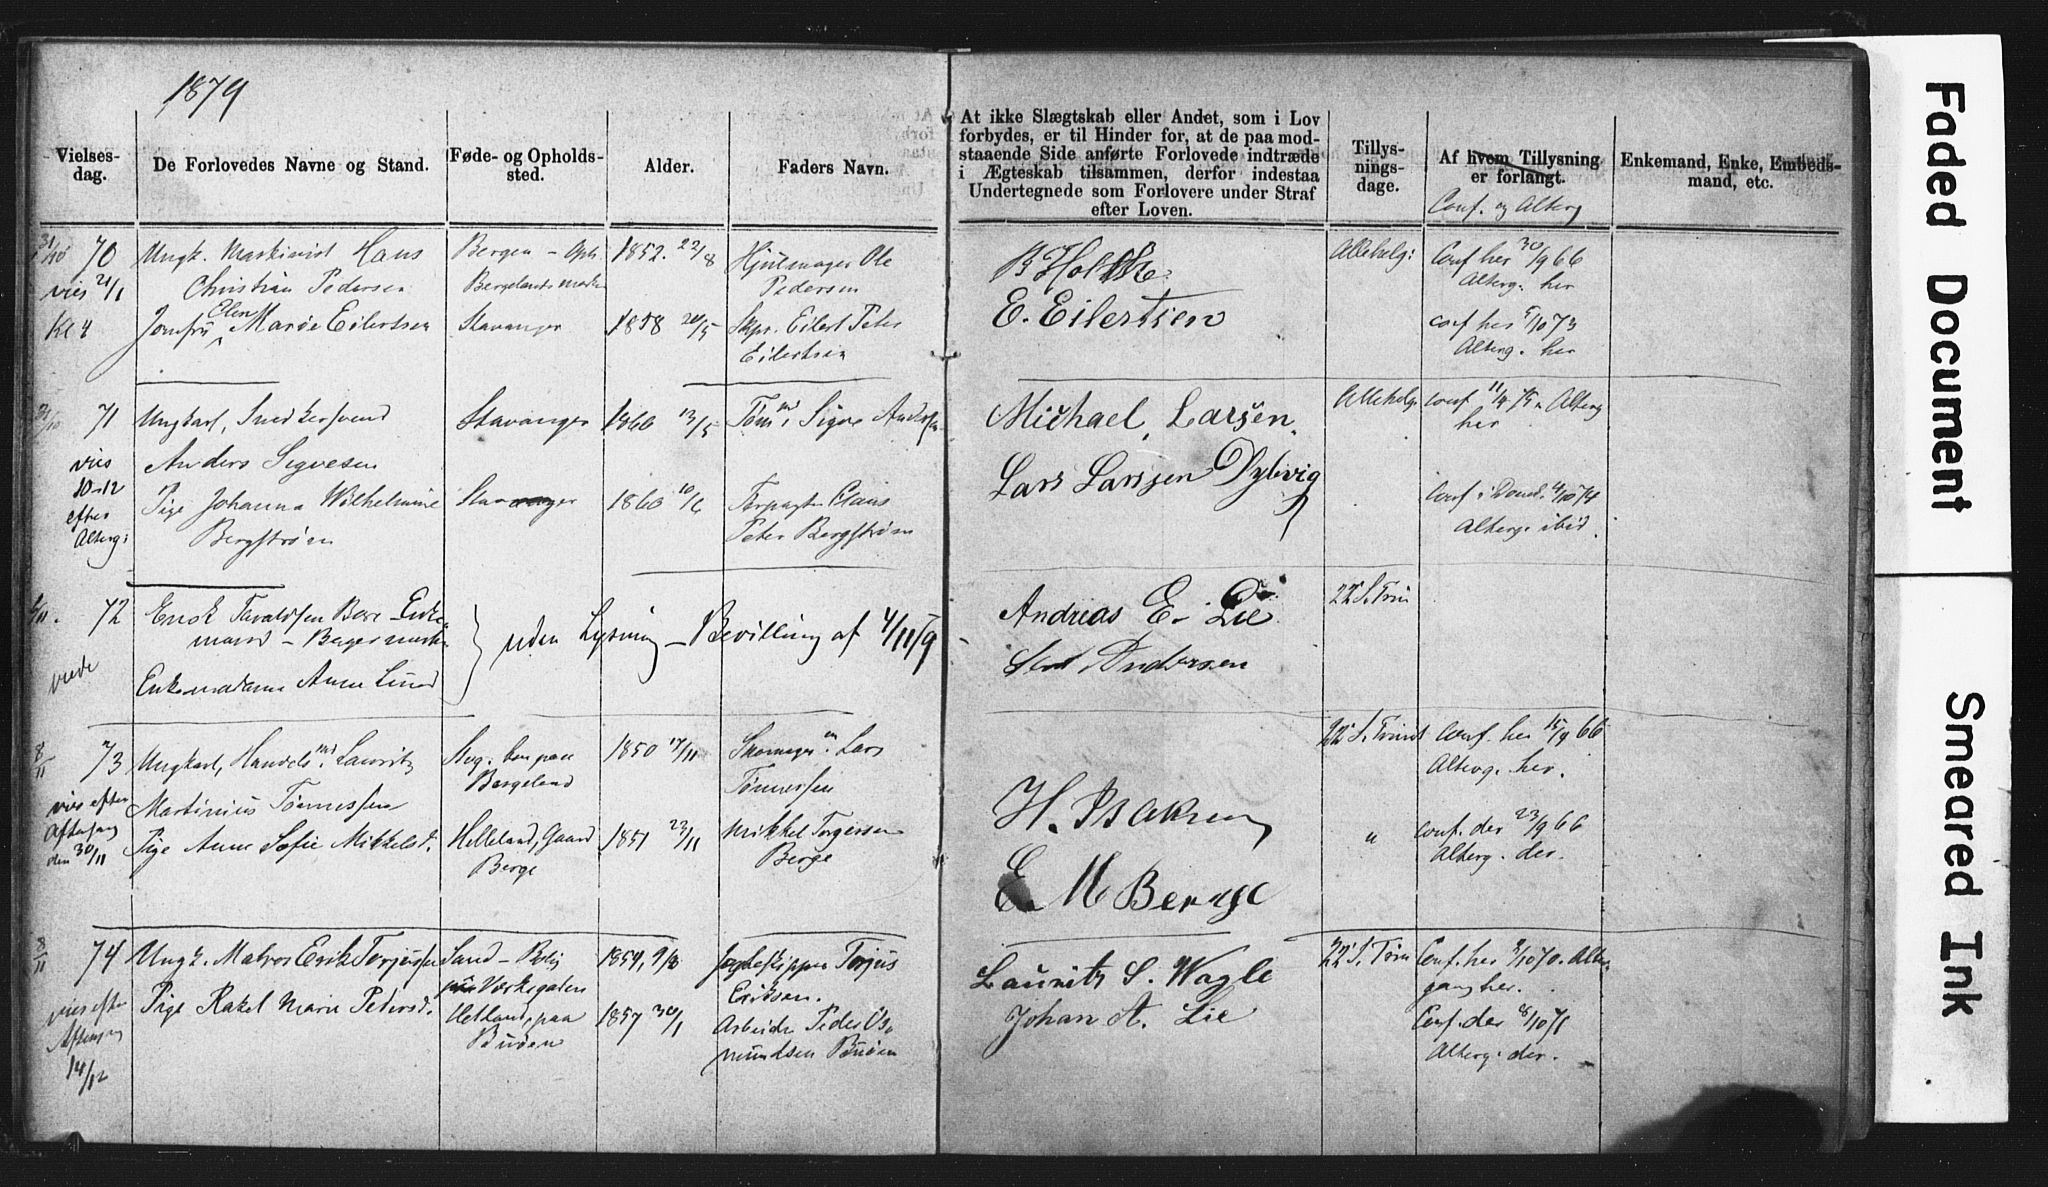 1879
Vielses-
dag.
De Forlovedes Navne og Stand.
Føde- og Opholds-
sted.
Alder.
Faders Navn.
At ikke Slægtskab eller Andet, som i Lov
forbydes, er til Hinder for, at de paa mod-
staaende Side anførte Forlovede indtræde
i Ægteskab tilsammen, derfor indestaa
Undertegnede som Forlovere under Straf
efter Loven.
Tillys-
nings-
dage.
Af hvem Tillysning
er forlangt.
Conf. og Alterg
Enkemand, Enke, Embeds-
mand, etc.
31/10 70 Ungk. Maskinist Hans Bergen - Oph. 1852. 22/8 Hjulmager Ole
vies 21/1 Christian Pedersen Bergelandsmarken Pedersen
Kl 4 Jomfru Elen Marie Eilertsen Stavanger 1858 20/5 Skpr. Eilert Peter
Eilertsen
B Holst
E. Eilertsen
Allehelg: Conf her 30/9 66
Alterg. her
conf her 5/10 73
Alterg. her
31/10 71 Ungkarl, Snedkersvend Stavanger 1860 13/5 Tømmd. Sigve
vies Anders Sigvesen
10-12 Pige Johanna Wilhelmine Stavanger 1860 10/6 Claus
efter Bergstrøm Peter Bergstrøm
Alterg:
Michael Larsen
Lars Larssen Dybvig
Allehelg conf 11/4 75. Alterg
her
Conf i Domk. 4/10 74
Alterg. ibid.
6/11. 72 Enok Tavaldsen Enke-
mand - Bergesmarken
viede Enkemadame Anne Lund
uden Lysning - Bevilling af 4/11 79
Andreas E. Lie
Andersen
22 S. Trin
8/11 73 Ungkarl, Handelsmd. Lauritz Stvg. bor paa 1850 17/11 Skomager Lars
vies efter Martinius Tønnessen Bergeland Tønnessen
Aftensang Pige Anne Sofie Mikkelsd. Helleland, Gaard 1851 23/11 Mikkel Torgersen
den 30/11 Berge Berge
H. Isaksen
E M Berge
22 S. Trinit Conf. her 15/9 66
Alterg. her.
" Conf. der 23/9 66
Alterg. der.
8/11 74 Ungk. Matros Erik Torjusen Sand - Bolig 1854, 9/8 Torjus
vies efter Verksgaten Eriksen.
Aftensang Pige Rakel Marie Petersd. Hetland, paa 1857 30/1 Arbeider Peder Os-
14/12 Buøen mundsen Buøen
Lauritz S. Wagle
Johan A. Lie
22 S. Trin Conf. her 2/10 70. Alter-
gang her.
Conf. der 8/10 71
Alterg. der.
Faded Document
Smeared Ink